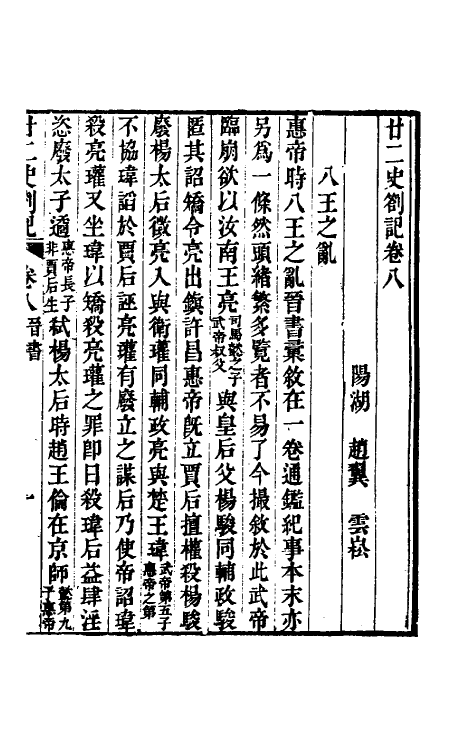 廿二史劄記卷八
陽湖 趙翼 雲崧
八王之亂
惠帝時八王之亂晉書彙敘在一卷通鑑紀事本末亦
另爲一條然頭緒繁多覽者不易了今撮敘於此武帝
臨崩欲以汝南王亮司馬懿之子武帝叔父與皇后父楊駿同輔政駿
匿其詔矯令亮出鎮許昌惠帝旣立賈后擅權殺楊駿
廢楊太后徵亮入與衛瓘同輔政亮與楚王瑋武帝第五子惠帝之弟
不協瑋諂於賈后誣亮瓘有廢立之謀后乃使帝詔瑋
殺亮瓘又坐瑋以矯殺亮瓘之罪卽日殺瑋后益肆淫
恣廢太子遹惠帝長子非賈后生弑楊太后時趙王倫在京師懿第九子惠帝
廿二史劄記 卷八 晉書 一